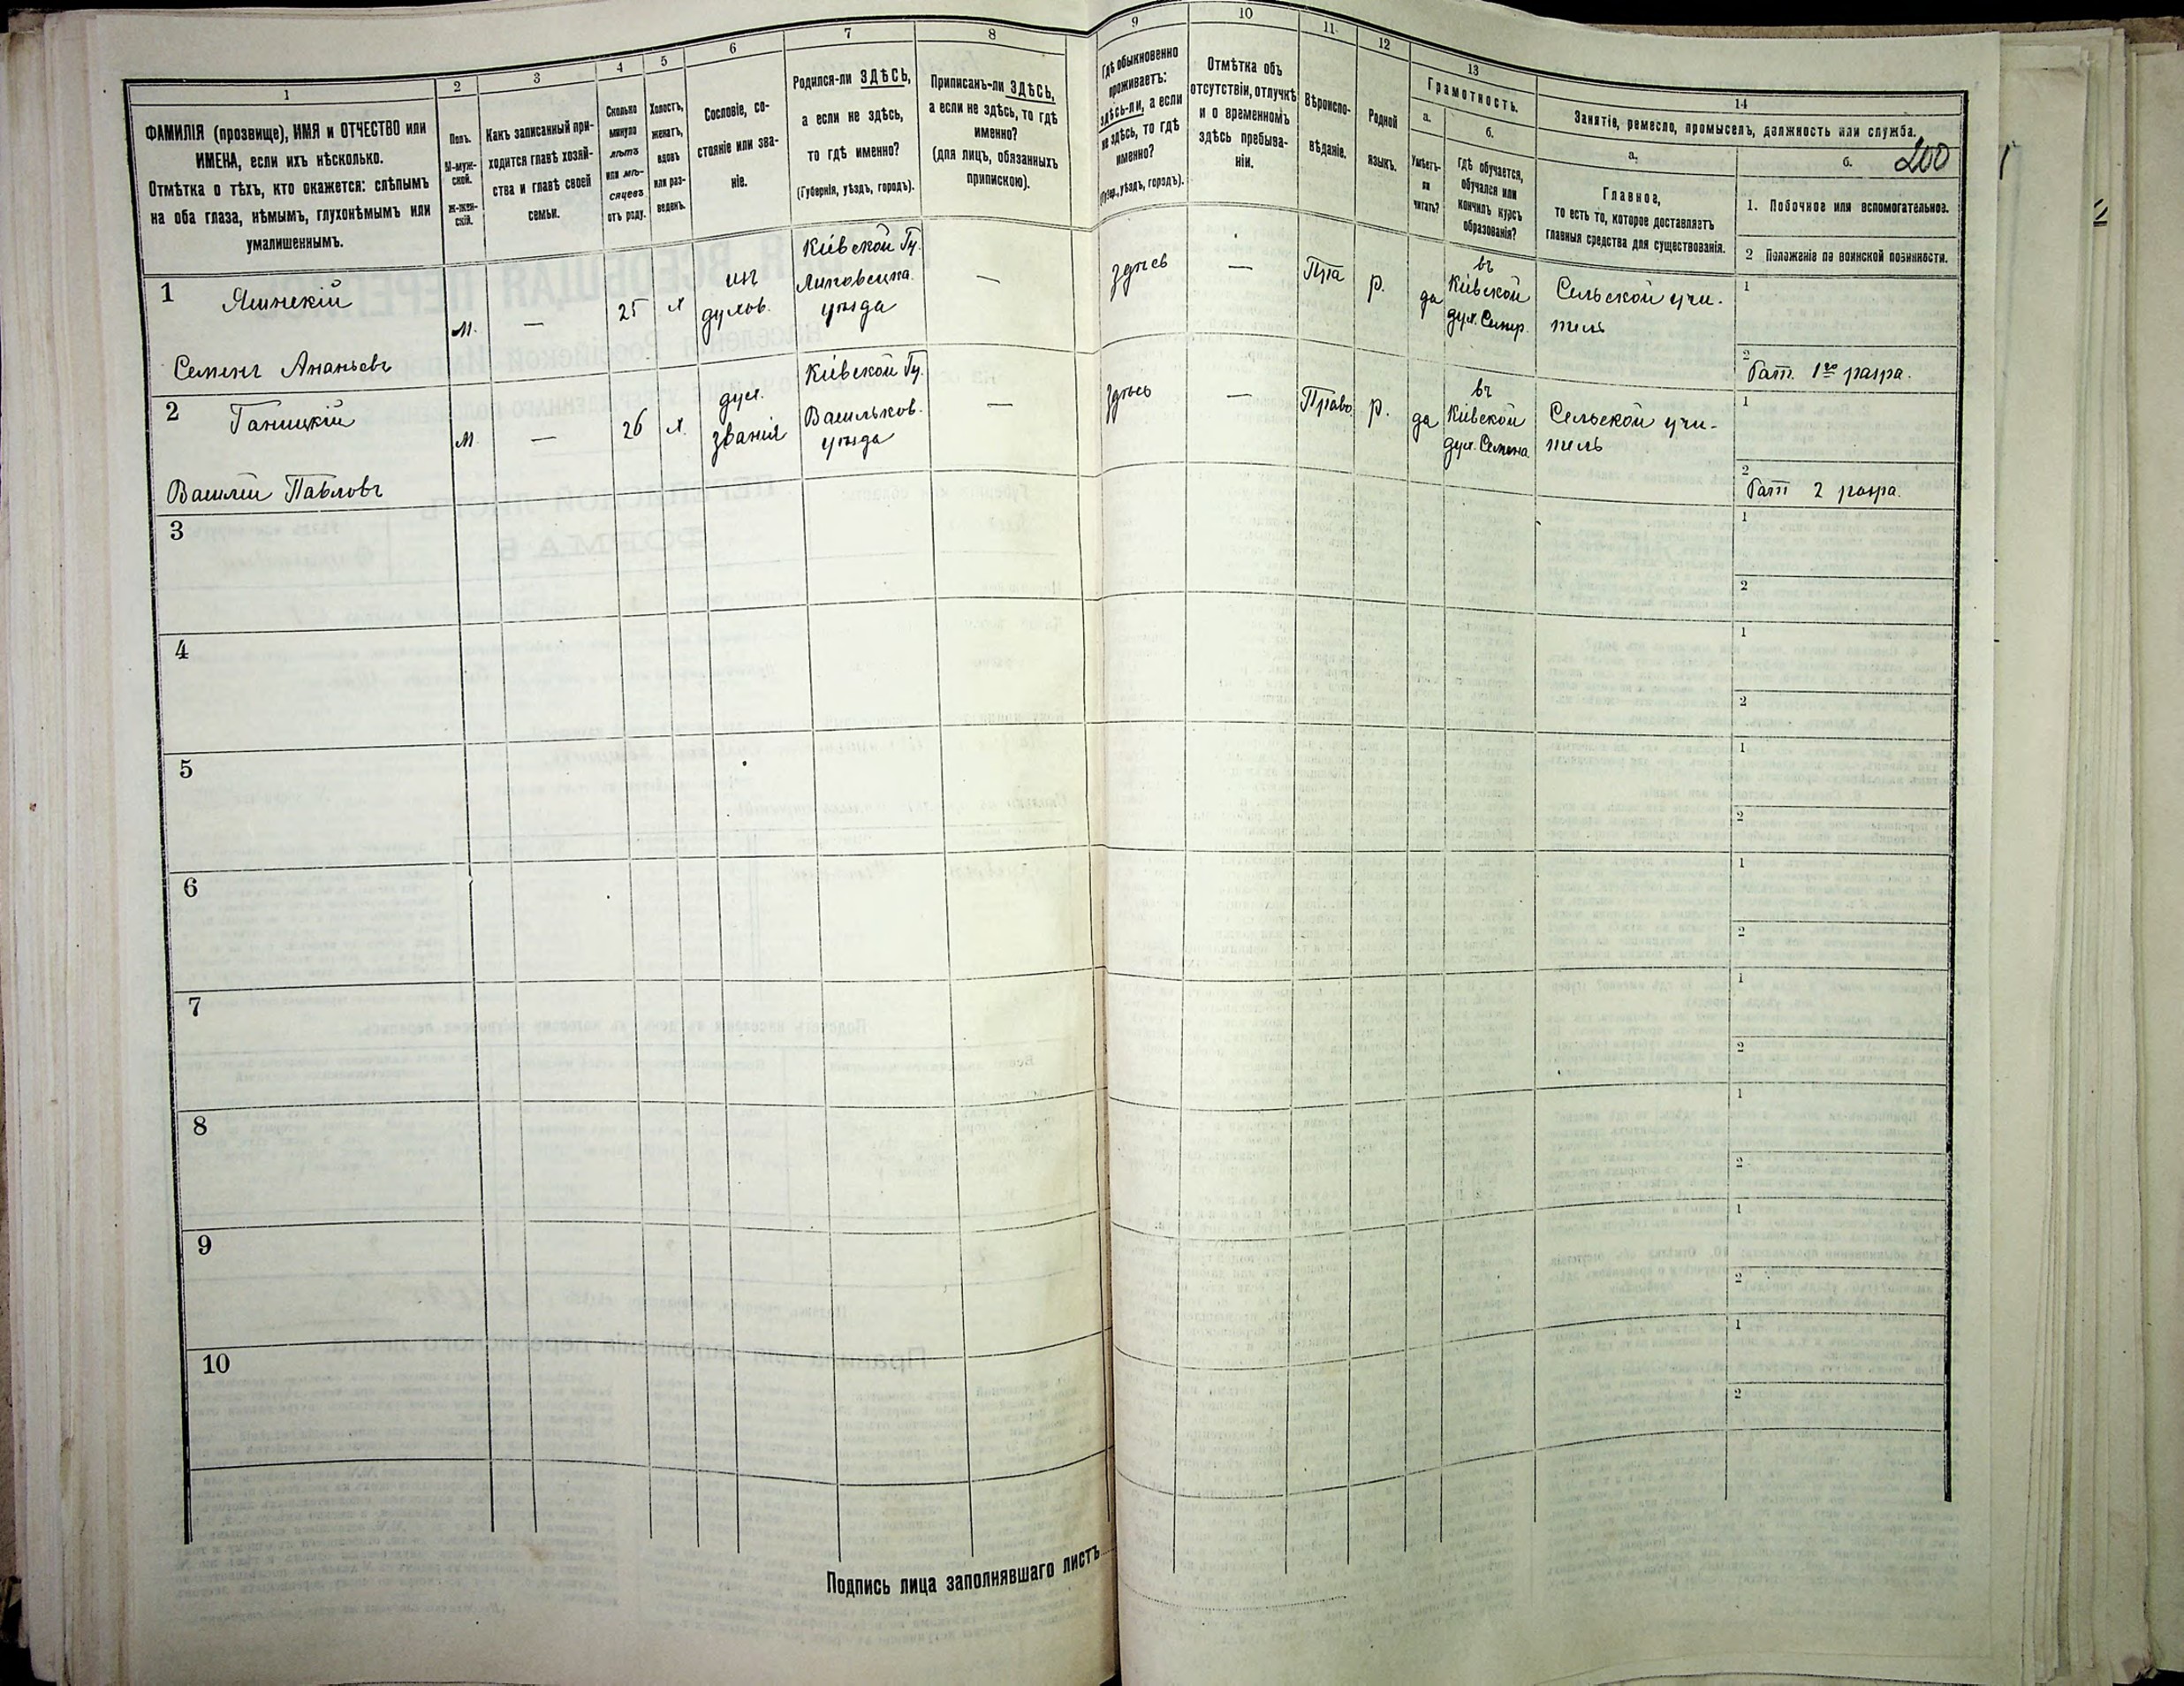 1
2
3
4
5
6
7
8
9
10
11
12
13
14
ФАМИЛІЯ (прозвище), ИМЯ и ОТЧЕСТВО или
ИМЕНА, если ихъ нѣсколько.
Отмѣтка о тѣхъ, кто окажется: слѣпымъ
на оба глаза, нѣмымъ, глухонѣмымъ или
умалишеннымъ.
Полъ.
М-муж-
ской.
Ж-жен-
скій.
Какъ записанный при-
ходится главѣ хозяй-
ства и главѣ своей
семьи.
Сколько
минуло
лѣтъ
или мѣ-
сяцевъ
отъ роду.
Холостъ,
женатъ,
вдовъ
или раз-
веденъ.
Сословіе, со-
стояніе или зва-
ніе.
Родился-ли ЗДѢСЬ,
а если не здѣсь,
то гдѣ именно?
(Губернія, уѣздъ, городъ).
Приписанъ-ли ЗДѢСЬ,
а если не здѣсь, то гдѣ
именно?
(для лицъ, обязанныхъ
припискою).
Гдѣ обыкновенно
проживаетъ:
здѣсь-ли, а если
не здѣсь, то гдѣ
именно?
(Губер., уѣздъ, городъ).
Отмѣтка объ
отсутствіи, отлучкѣ
и о временномъ
здѣсь пребыва-
ніи.
Вѣроиспо-
вѣданіе.
Родной
языкъ.
Грамотность.
а.
Умѣетъ-
ли
читать?
б.
гдѣ обучается,
обучался или
кончилъ курсъ
образованія?
Занятіе, ремесло, промыселъ, должность или служба.
а.
Главное,
то есть то, которое доставляетъ
главныя средства для существованія.
б.
200
1. Побочное или вспомогательное.
2 Положеніе по воинской повинности.
1
Семенъ Ананьевъ
м.
—
25
х
духов.
Кіевской Гу.
Липовецка.
уѣзда
—
—
Пра
р.
да
въ
Кіевской
дух. Семир.
Сельской учи-
тель
1
2
1го разра.
2
Василій Павловъ
м.
—
26
х.
дух.
званія
Кіевской Гу.
Васильков.
уѣзда
—
здѣсь
—
Право.
р.
да
въ
Кіевской
дух. Семина
Сельской учи-
тель
1
2
2 разра.
3
1
2
4
1
2
5
1
2
6
1
2
7
1
2
8
1
2
9
1
2
10
1
2
Подпись лица заполнявшаго листъ